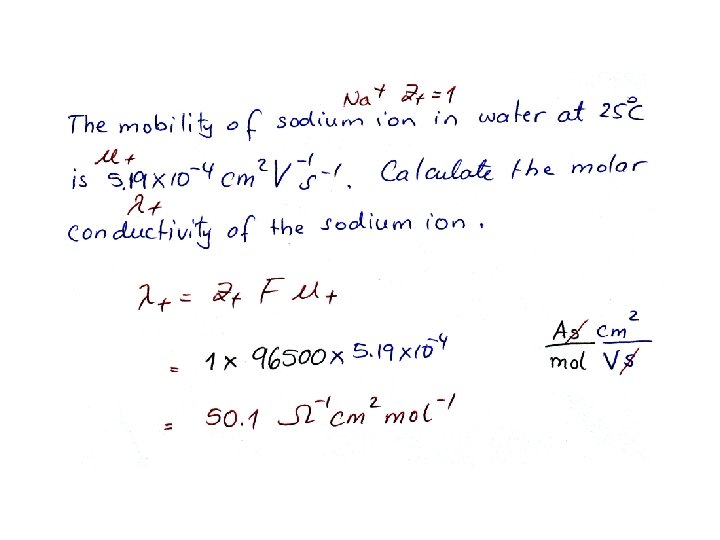 Na⁺ z₊ = 1
The mobility of sodium ion in water at 25°C
μ₊
is 5.19 × 10⁻⁴ cm² V⁻¹ s⁻¹. Calculate the molar
λ₊
conductivity of the sodium ion.
λ₊ = z₊ F μ₊
= 1 × 96500 × 5.19 × 10⁻⁴
As cm²
mol V s
= 50.1 Ω⁻¹ cm² mol⁻¹